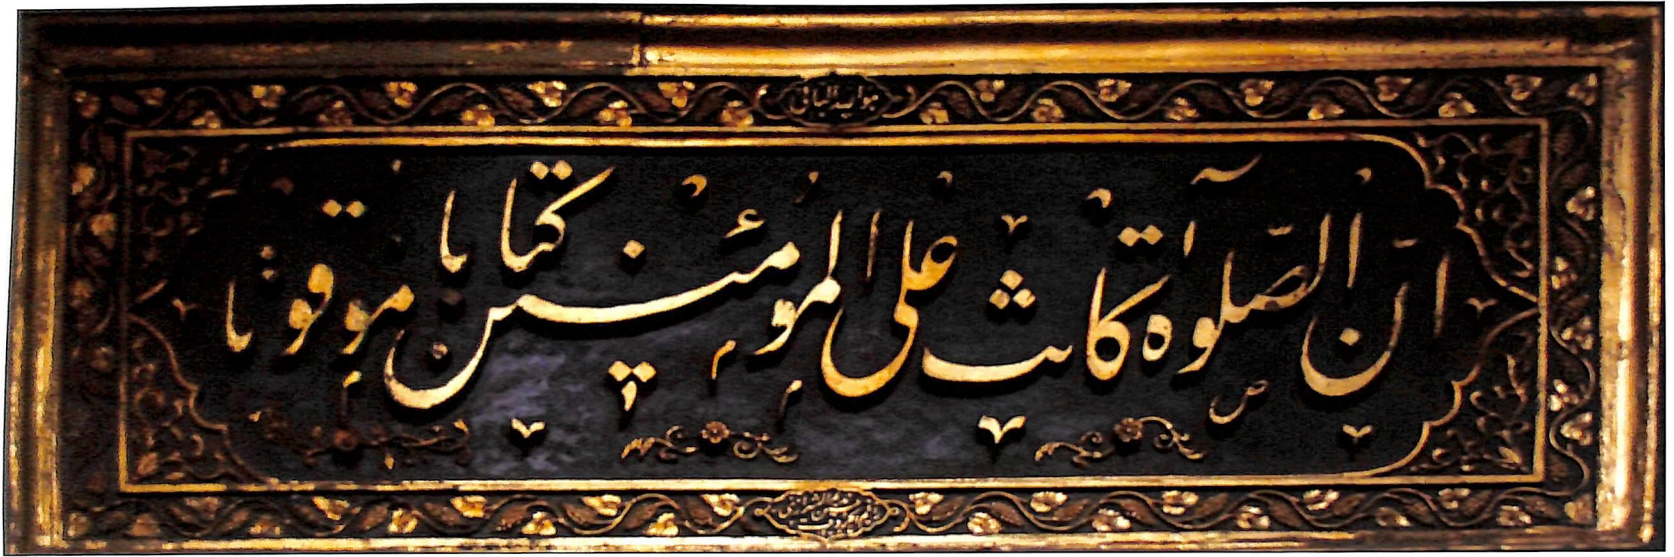 هو الله الباقي
انّ الصّلوة كانت على المؤمنين كتابا موقوتا